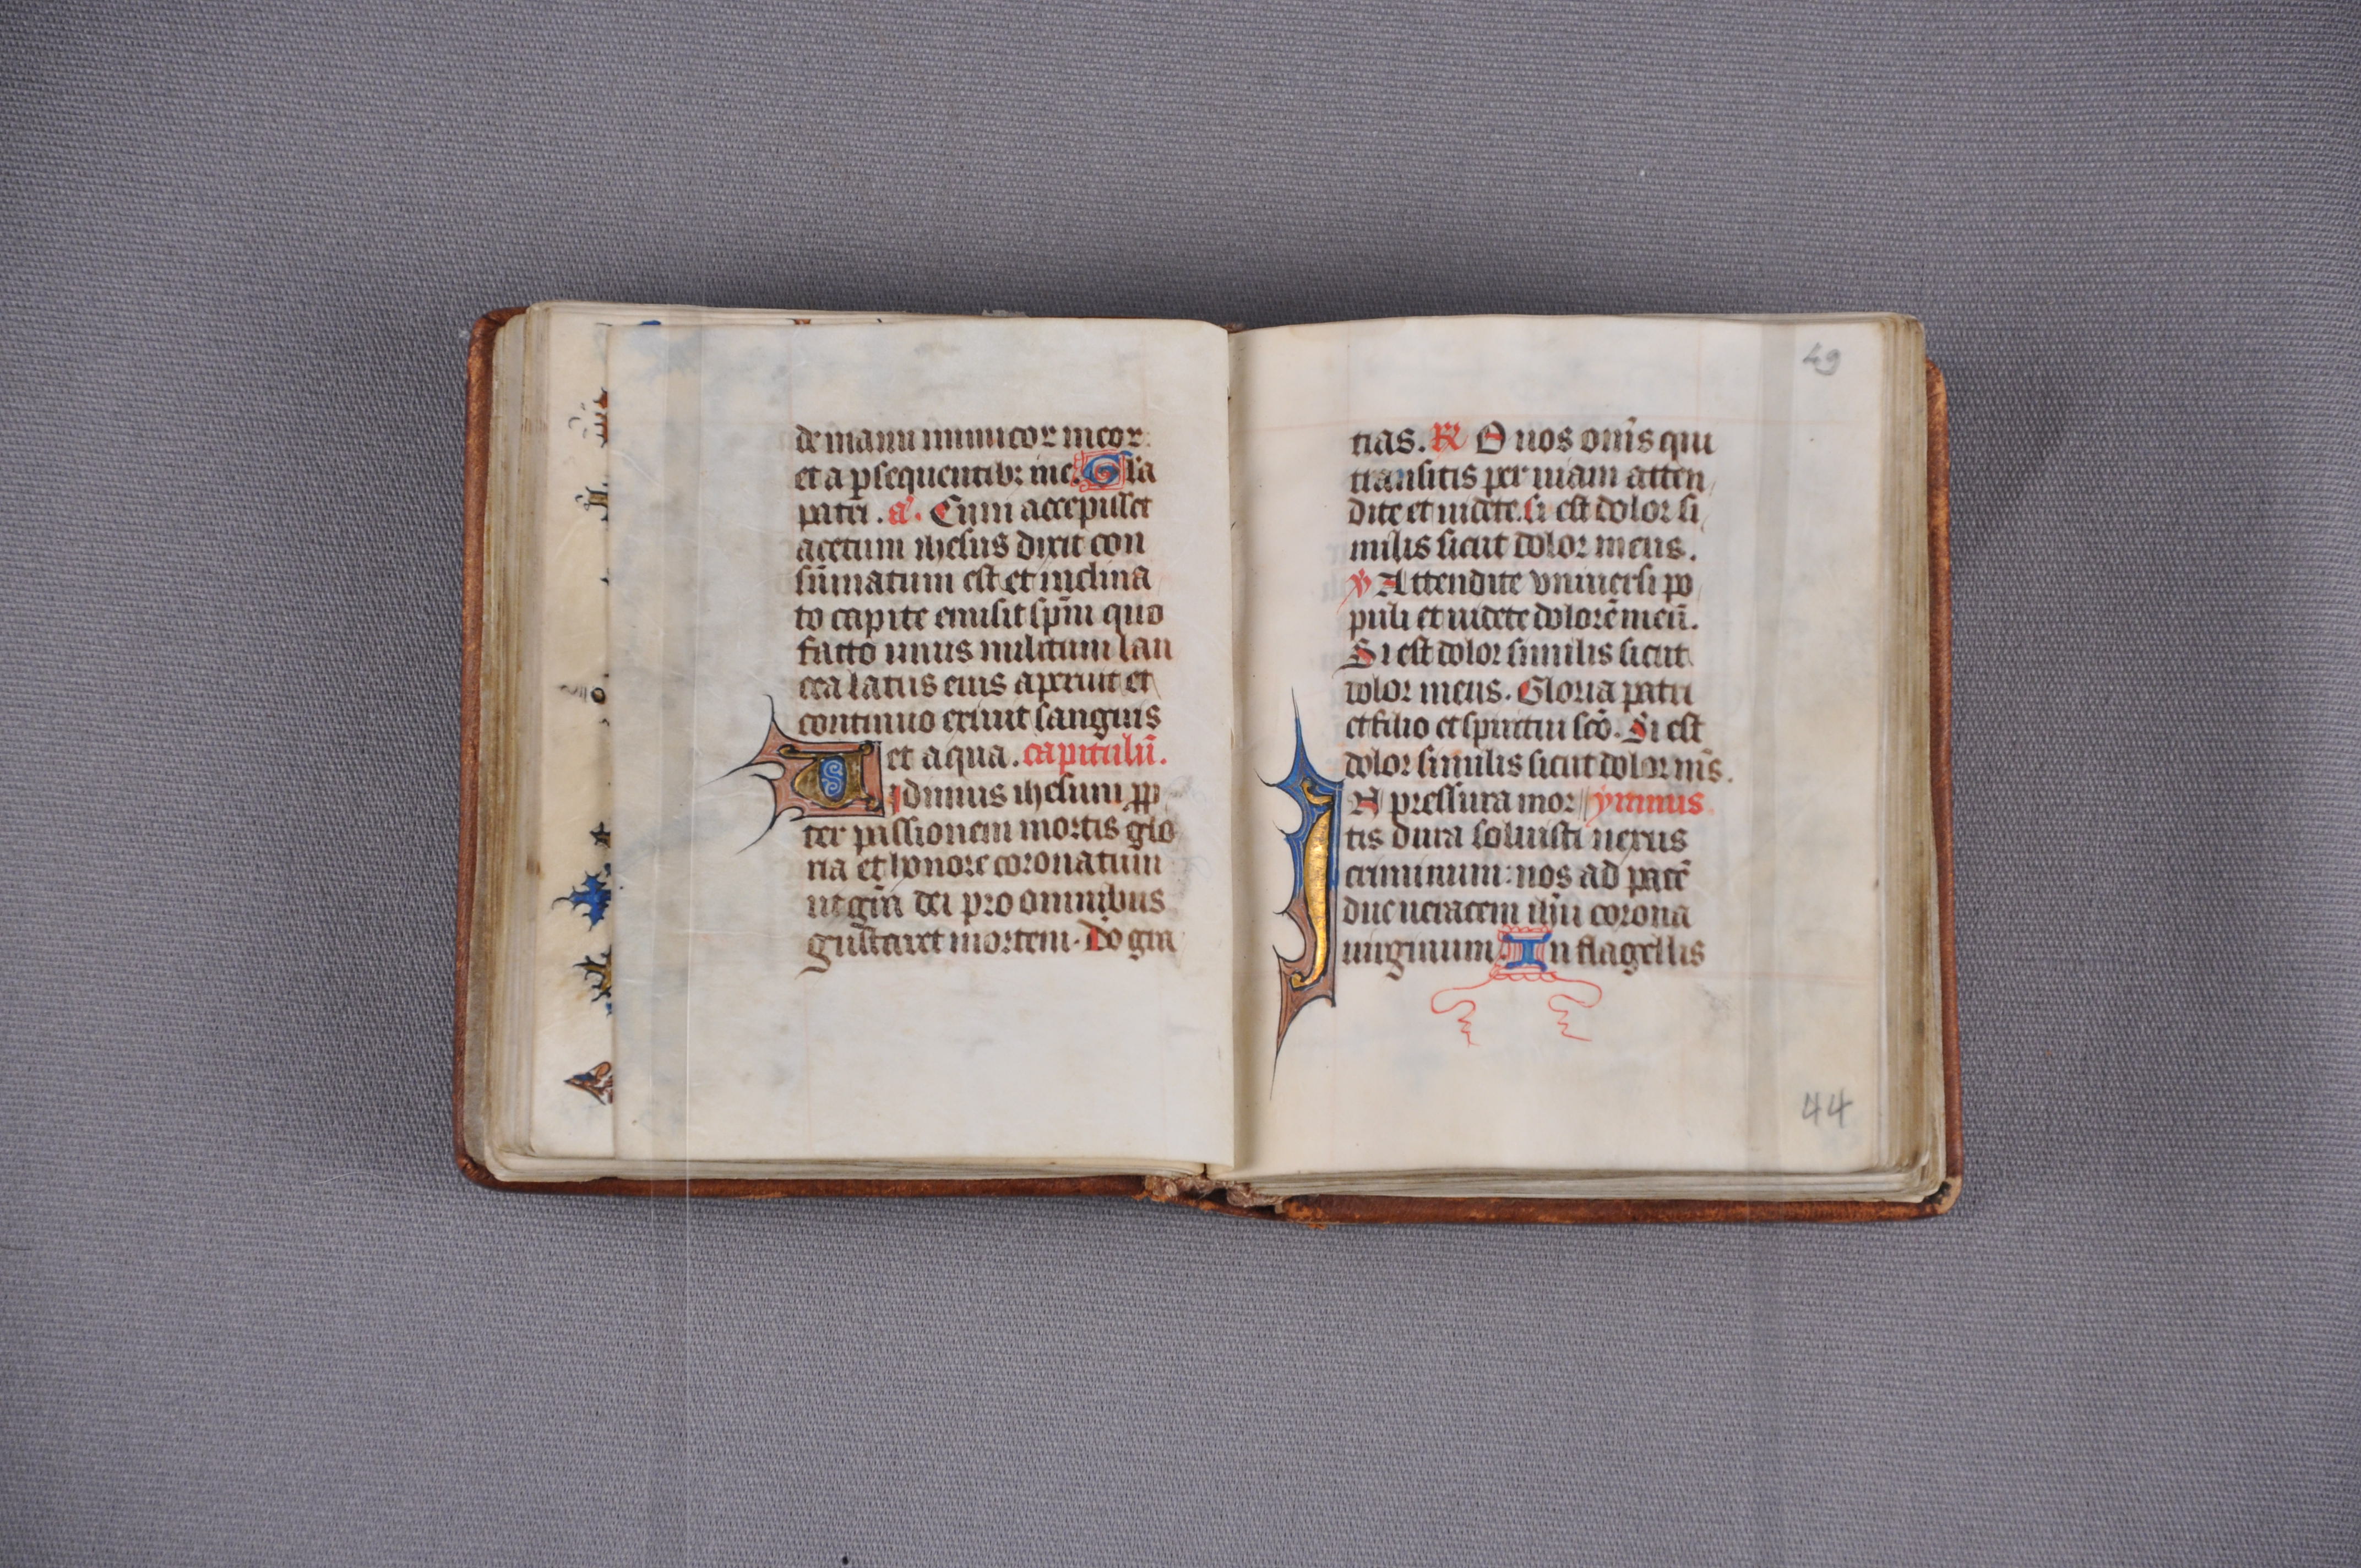 de manu inimicoꝝ meoꝝ
et a ꝑsequentibꝫ me. Gla
patri. a. Cum accepisset
acetum ihesus dixit con
sūmatum est et inclina
to capite emisit spm̄ quo
facto unus militum lan
cea latus eius aperuit et
continuo exiuit sanguis
et aqua. capitulū.
Vidimus ihesum ꝓp
ter passionem mortis glo
ria et honore coronatum
ut gr̄a dei pro omnibus
gustaret mortem. Deo gra
49
tias. R̷ O uos om̄s qui
transitis per uiam atten
dite et uidete. si est dolor si
milis sicut dolor meus.
v̷ Attendite vniuersi po
puli et uidete dolorē meū.
Si est dolor similis sicut
dolor meus. Gloria patri
et filio et spiritui sc̄o. Si est
dolor similis sicut dolor m̄s.
IN pressura mor ymnus
tis dura soluisti nexus
criminum: nos ad patrē
duc ueracem ihū corona
uirginum. In flagellis
44